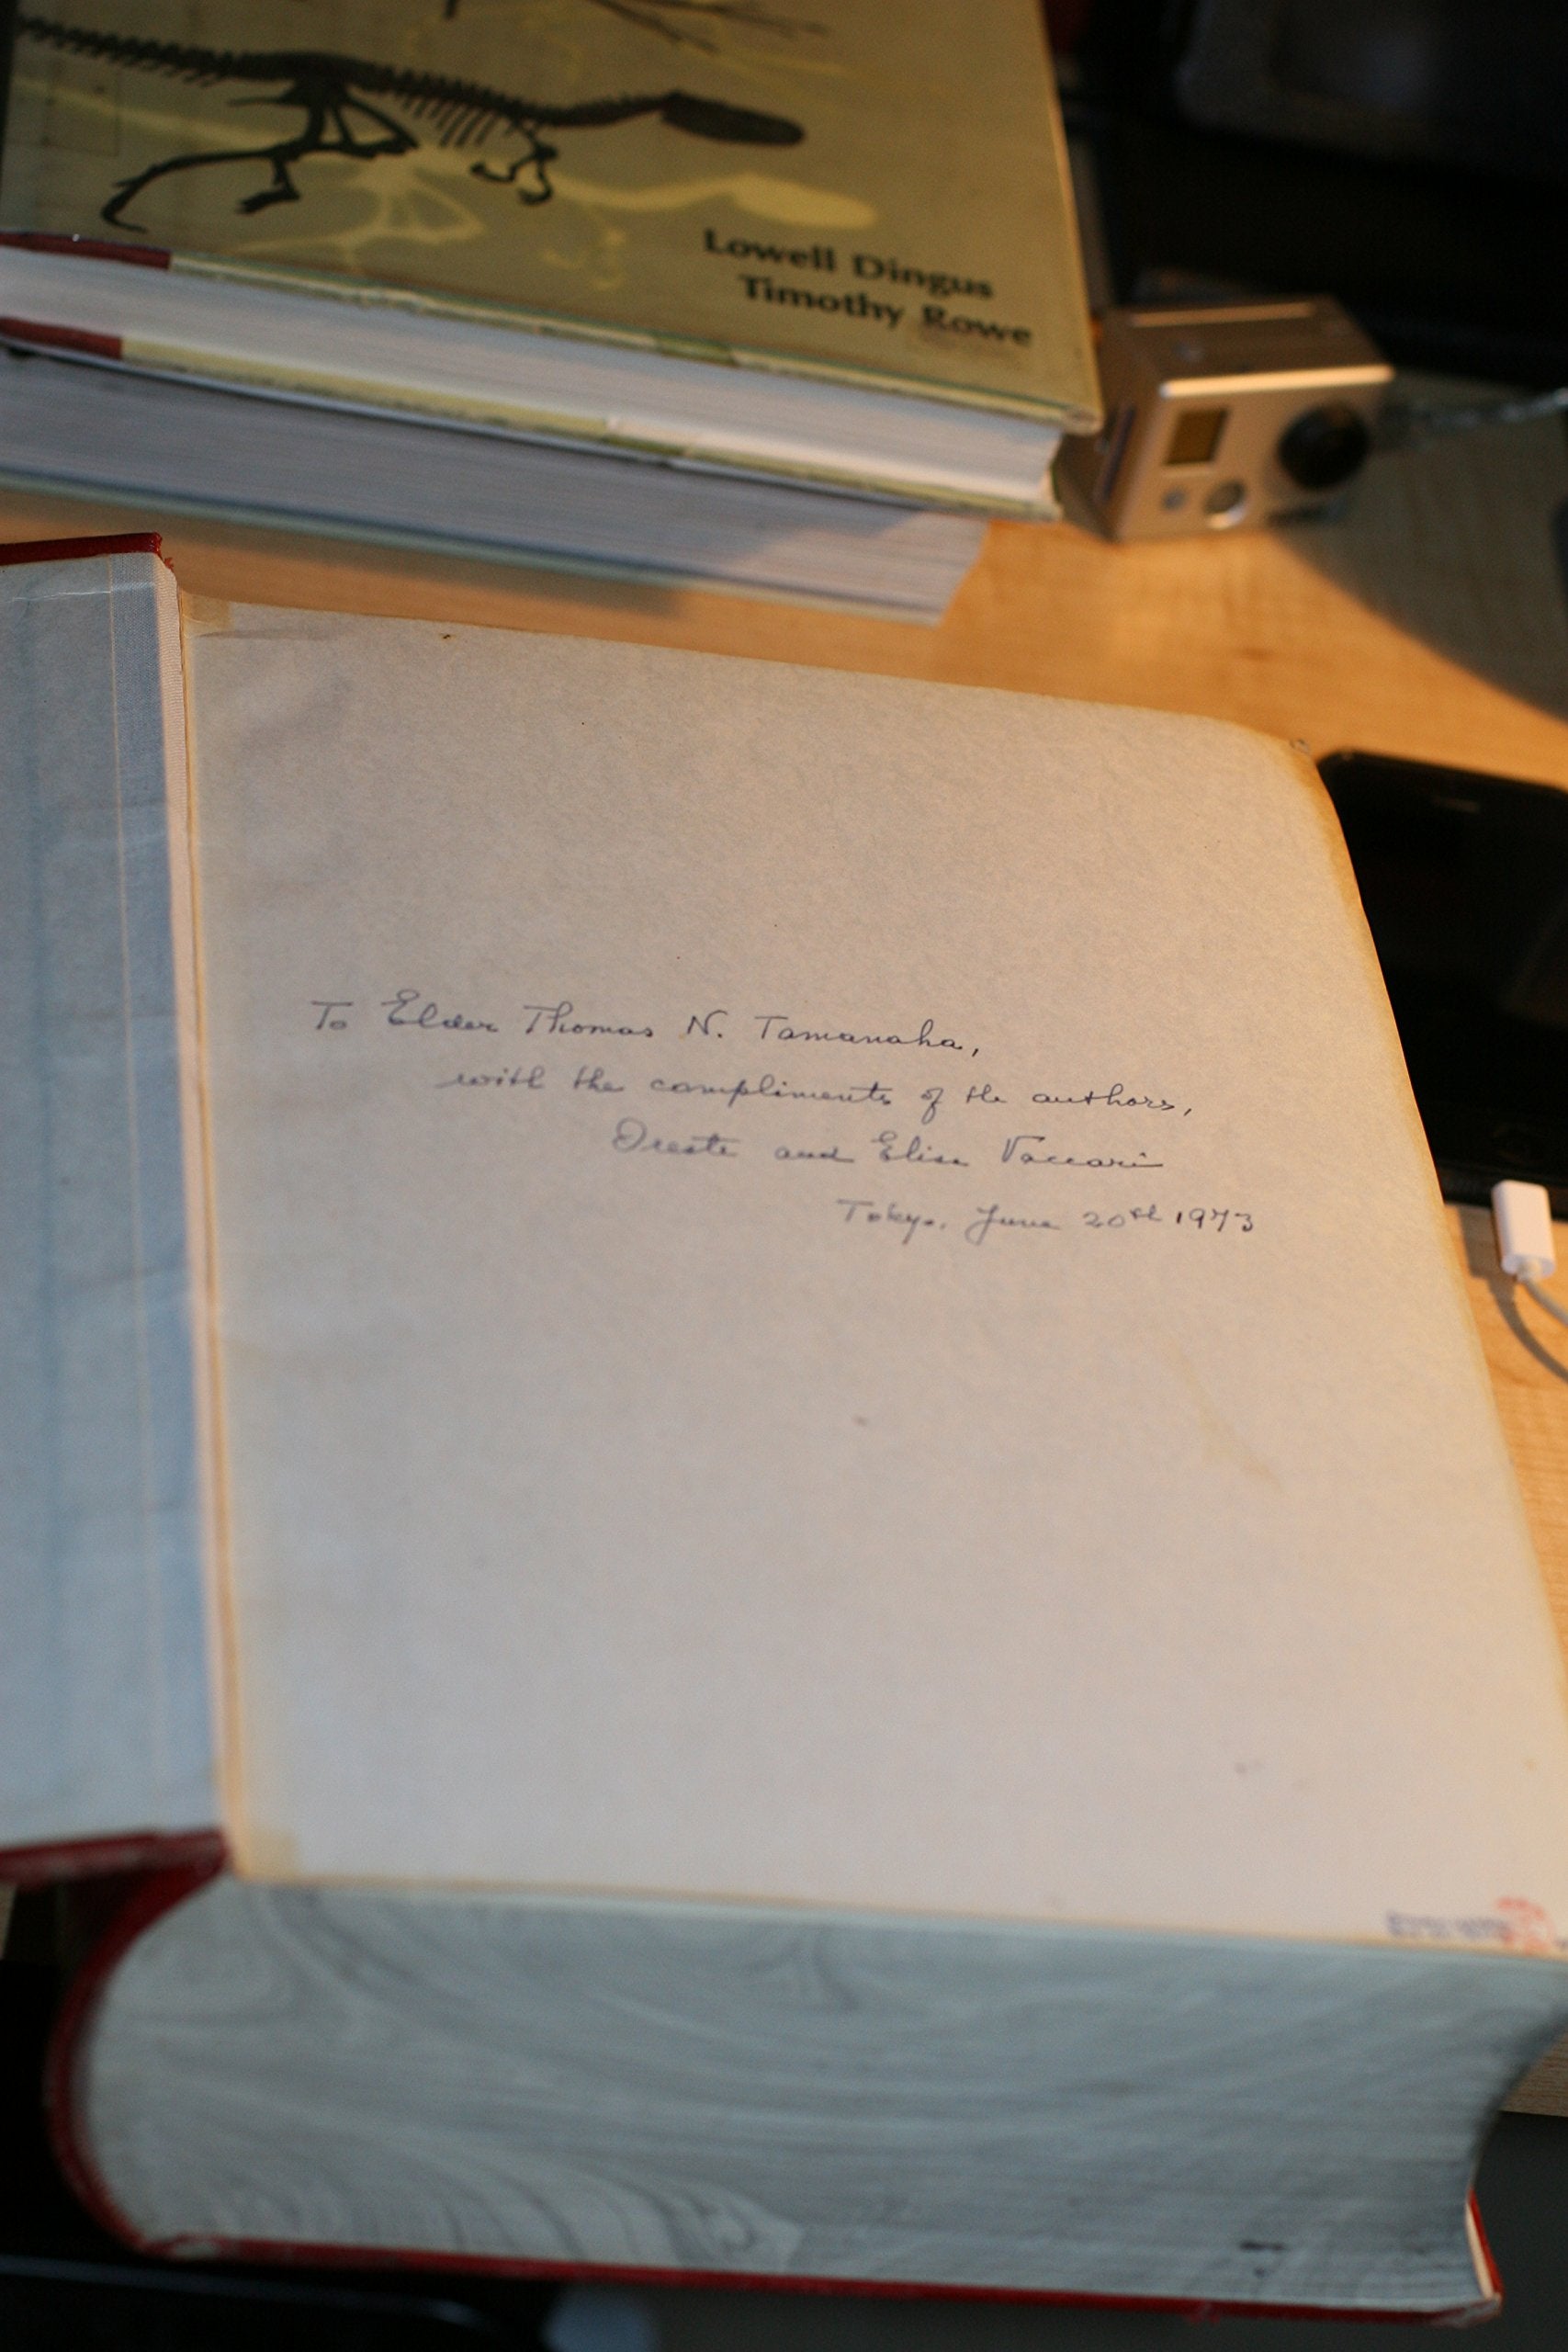 Lowell Dingus
Timothy Rowe
To Elder Thomas N. Tamanaha,
with the compliments of the authors,
Oreste and Elisa Vaccari
Tokyo. June 20th 1973